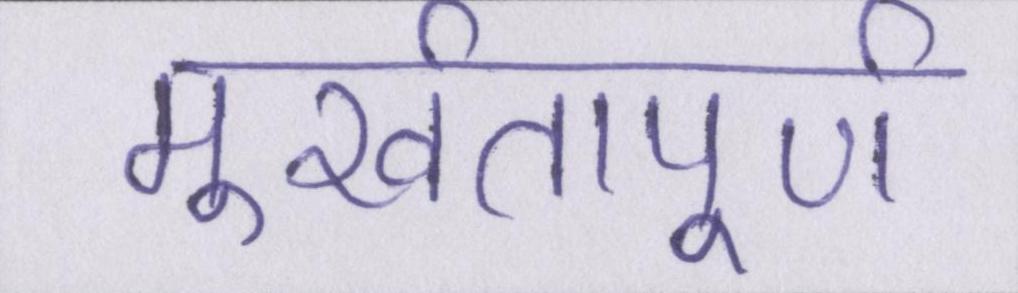 मूर्खतापूर्ण